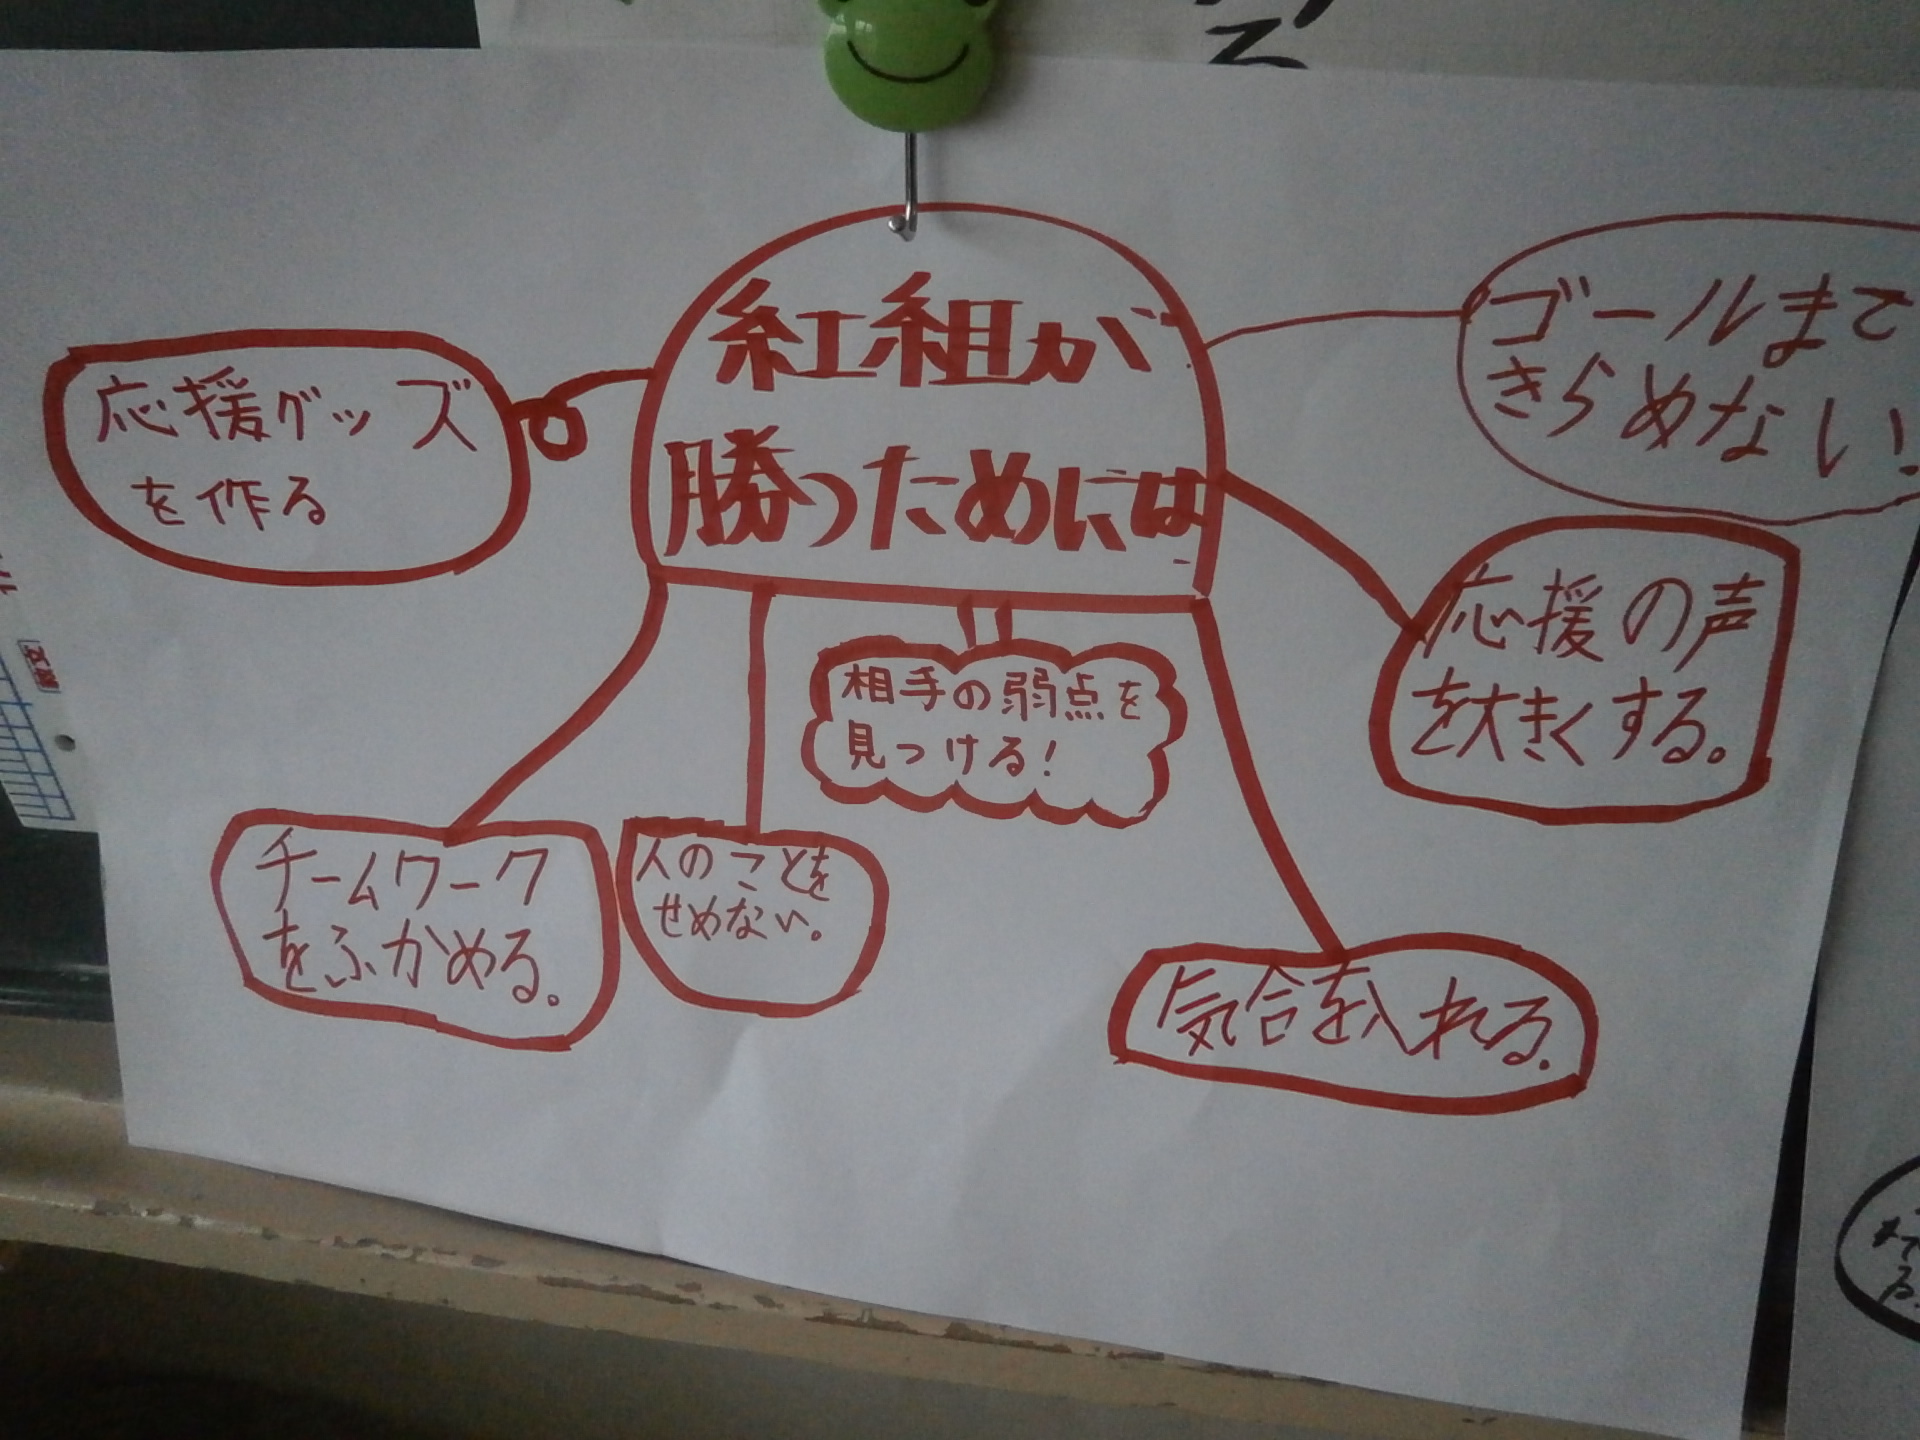 紅組が
勝つためには
応援グッズ
を作る
ゴールまで
きらめない!
応援の声
を大きくする。
相手の弱点を
見つける!
チームワーク
をふかめる。
人のことを
せめない。
気合を入れる。